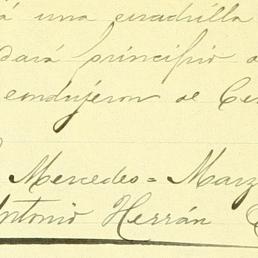 á una cuadrilla
dará principio a
condujéron al Ce
Mercedes = Marz
Antonio Herrán